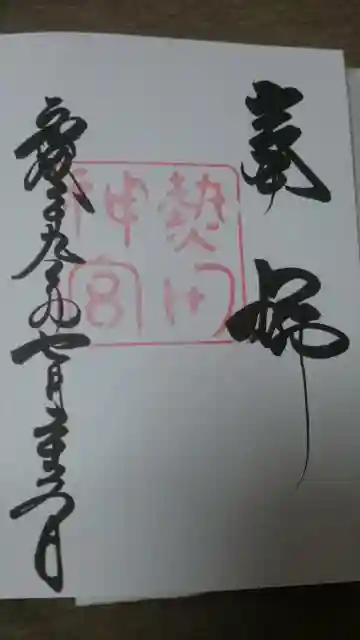 奉拝
熱田
神宮
平成二十九年七月日